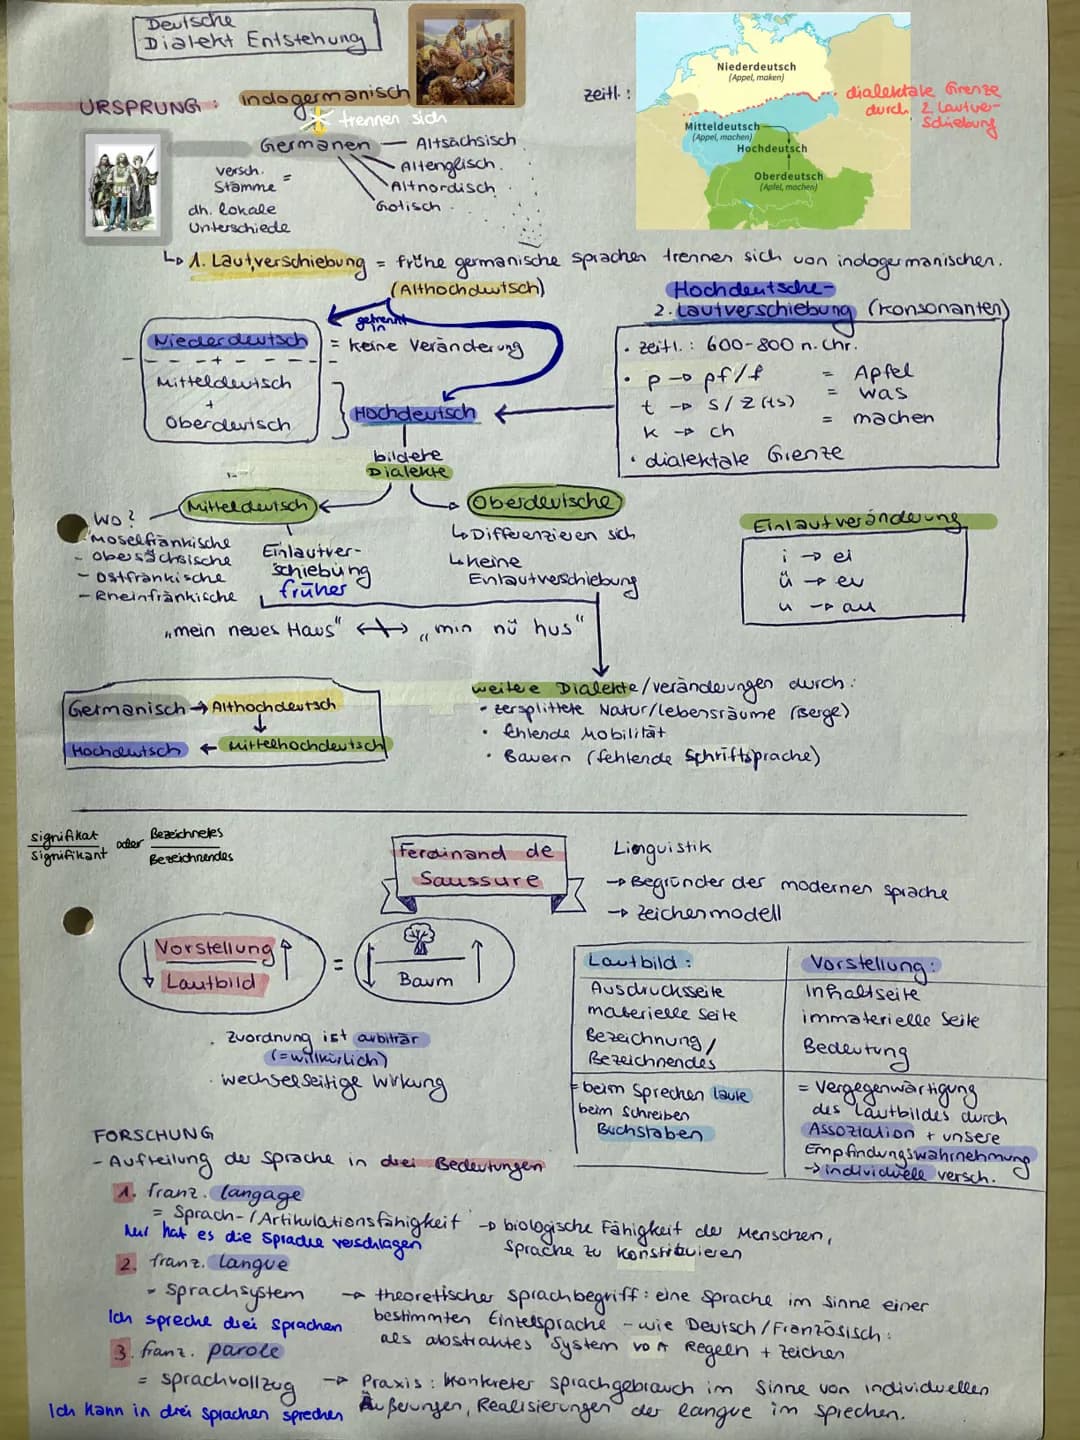 Deutsche
Dialekt Entstehung
URSPRUNG: Indogermanisch
trennen sich
Germanen — Altsächsisch
Altenglisch
Altnordisch
Gotisch
versch.
Stämme =
dh. lokale
Unterschiede
zeitl.:
Niederdeutsch
(Appel, maken)
Mitteldeutsch
(Appel, machen)
Hochdeutsch
Oberdeutsch
(Apfel, machen)
dialektale Grenze
durch 2. Lautver-
schiebung
↳ 1. Lautverschiebung = frühe germanische sprachen trennen sich von indogermanischen.
(Althochdeutsch)
getrennt
in
Niederdeutsch = keine Veränderung
+
Mitteldeutsch
+
Oberdeutsch
Hochdeutsch
Hochdeutsche-
2. Lautverschiebung (Konsonanten)
• zeitl.: 600-800 n. Chr.
• p → pf/f = Apfel
t → s/z(ts) = was
k → ch = machen
• dialektale Grenze
bildete
Dialekte
Mitteldeutsch
Wo?
Moselfränkische
- Obersächsische
- Ostfränkische
- Rheinfränkische
Einlautver-
schiebung
früher
Oberdeutsche
↳ Differenzieren sich
↳ keine
Einlautverschiebung
Einlautveränderung
i → ei
ü → eu
u → au
„mein neues Haus" ↔ „min nü hus"
Germanisch → Althochdeutsch
↓
Hochdeutsch ← Mittelhochdeutsch
weitere Dialekte/veränderungen durch:
• zersplittete Natur/lebensräume (Berge)
• fehlende Mobilität
• Bauern (fehlende Schriftsprache)
signifikat
signifikant
oder
Bezeichnetes
Bezeichnendes
Ferdinand de
Saussure
Linguistik
→ Begründer der modernen sprache
→ zeichenmodell
Vorstellung
Lautbild
=
Baum
• zuordnung ist arbiträr
(=willkürlich)
• wechselseitige wirkung
Lautbild:
Ausdrucksseite
materielle Seite
Bezeichnung/
Bezeichnendes
= beim Sprechen laute
beim schreiben
Buchstaben
Vorstellung:
Inhaltseite
immaterielle Seite
Bedeutung
= Vergegenwärtigung
des Lautbildes durch
Assoziation + unsere
Empfindungswahrnehmung
→ individuell versch.
FORSCHUNG
- Aufteilung der Sprache in drei Bedeutungen
1. franz. langage
= Sprach-/Artikulationsfähigkeit → biologische Fähigkeit der Menschen,
Sprache zu konstituieren
hat es die Sprache verschlagen
2. franz. langue
= Sprachsystem → theoretischer sprachbegriff: eine sprache im sinne einer
bestimmten Einzelsprache - wie Deutsch/Französisch:
als abstraktes System von Regeln + zeichen
Ich spreche drei Sprachen
3. franz. parole
= sprachvollzug → Praxis: konkreter sprachgebrauch im Sinne von individuellen
Äußerungen, Realisierungen der langue im sprechen.
Ich kann in drei sprachen sprechen